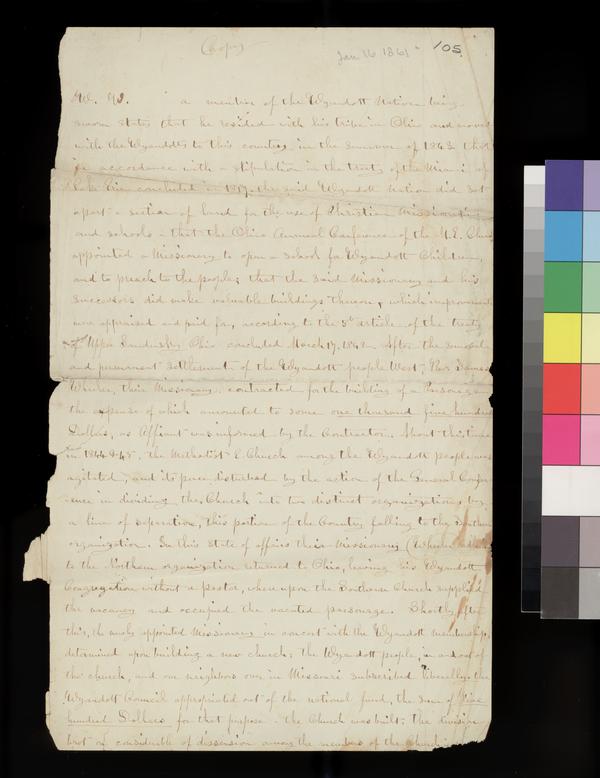 (Copy)
Jan 16 1861
105
a member of the Wyandott Nation being
sworn states that he resided with his tribe in Ohio and moved
with the Wyandotts to this country in the summer of 1843 that
in accordance with a stipulation in the treaty of the Miami of
Lake Erie concluded in 1817, the said Wyandott Nation did set
apart a section of land for the use of Christian Missionaries
and schools - that the Ohio Annual Conference of the M.E. Church
appointed a Missionary to open a school for Wyandott Children,
and to preach to the people; that the said Missionary and his
successors did make valuable buildings thereon, which improvements
were appraised and paid for, according to the 5th article of the treaty
of Upper Sandusky Ohio concluded March 17, 1842. After the removal
and permanent settlement of the Wyandott people West, Rev James
Wheeler, their Missionary, contracted for the building of a Parsonage
the expense of which amounted to some one thousand five hundred
Dollars, as Affiant was informed by the Contractor. About this time
in 1844 & 45, the Methodist E. Church among the Wyandott people was
agitated, and its peace disturbed by the action of the General Confer
ence in dividing the Church into two distinct organizations by
a line of separation, this portion of the Country falling to the Southern
organization. In this state of affairs their Missionary (Wheeler)
to the Northern organization returned to Ohio, leaving his Wyandott
Congregation without a pastor, whereupon the Southern Church supplied
the vacancy and occupied the vacated parsonage. Shortly after
this, the newly appointed Missionary in concert with the Wyandott membership,
determined upon building a new church; the Wyandott people, in and out of
the church, and our neighbors over in Missouri subscribed liberally; the
Wyandott Council appropriated out of the national fund, the sum of Five
hundred Dollars for that purpose - the Church was built; the division
of considerable of dissension among the members of the Church